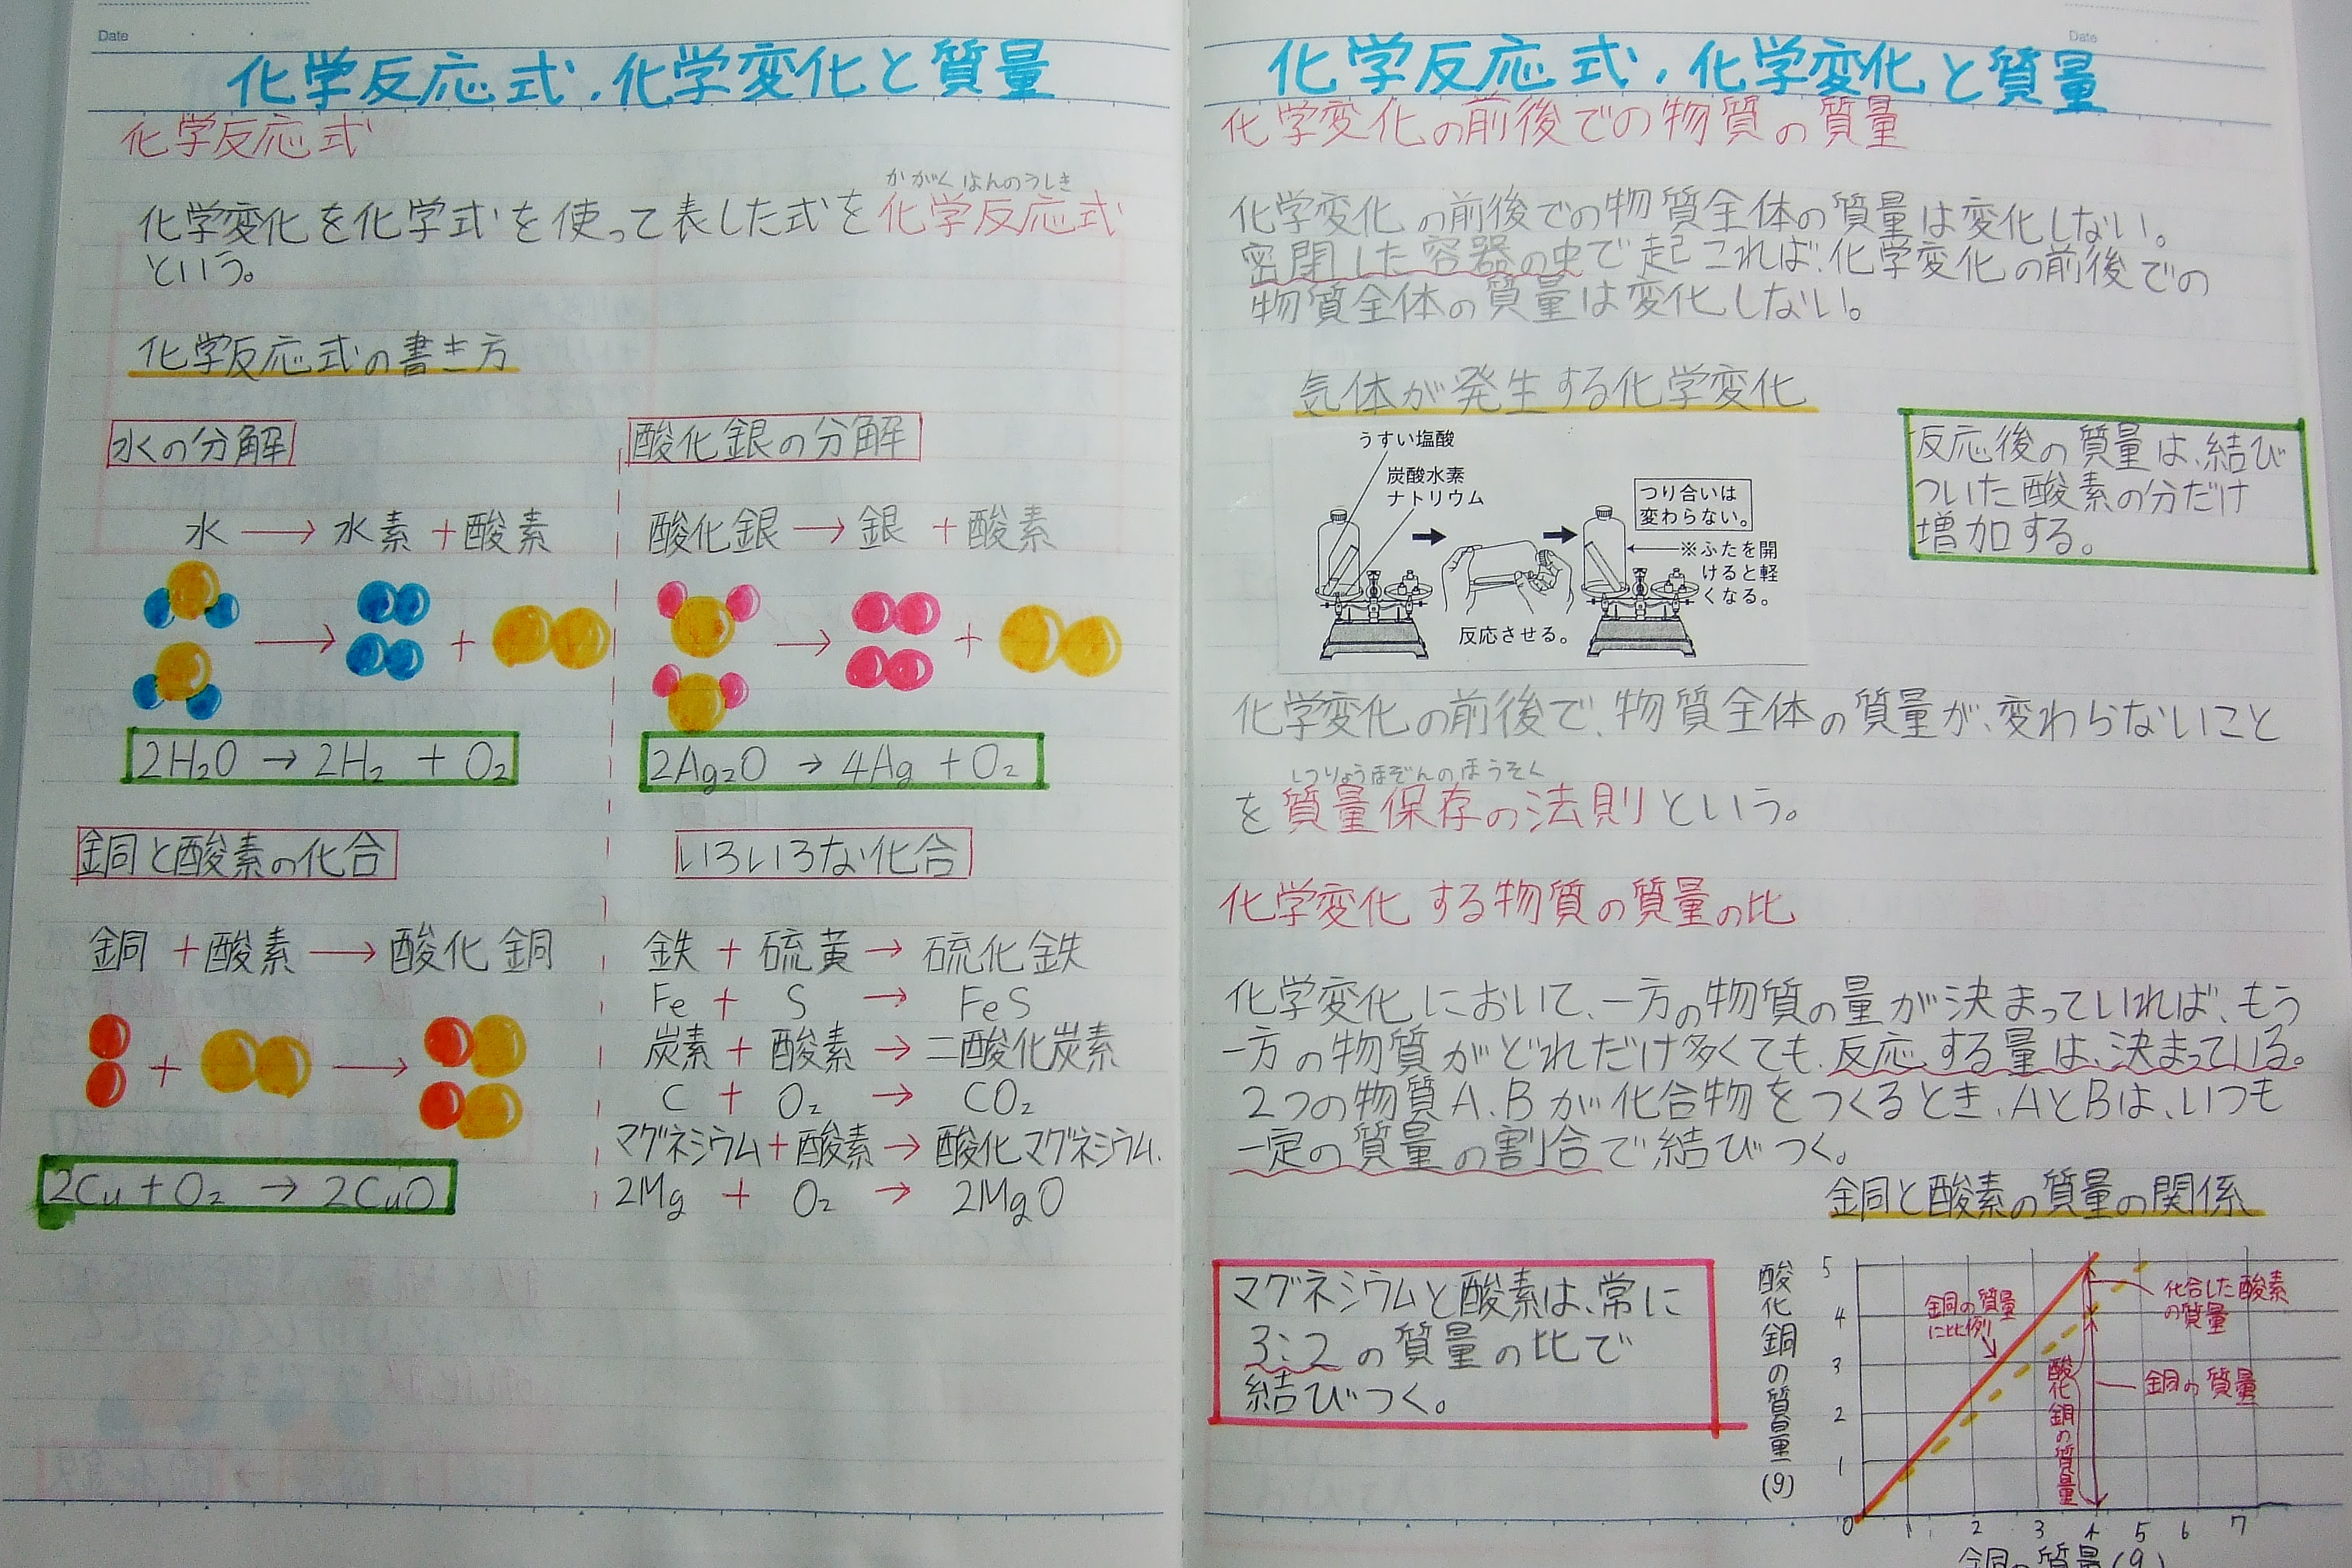 Date
化学反応式、化学変化と質量
化学反応式
かがくはんのうしき
化学変化を化学式を使って表した式を化学反応式
という。
化学反応式の書き方
水の分解
水 → 水素 + 酸素
2H₂O → 2H₂ + O₂
酸化銀の分解
酸化銀 → 銀 + 酸素
2Ag₂O → 4Ag + O₂
銅と酸素の化合
銅 + 酸素 → 酸化銅
2Cu + O₂ → 2CuO
いろいろな化合
鉄 + 硫黄 → 硫化鉄
Fe + S → FeS
炭素 + 酸素 → 二酸化炭素
C + O₂ → CO₂
マグネシウム + 酸素 → 酸化マグネシウム.
2Mg + O₂ → 2MgO
Date
化学反応式、化学変化と質量
化学変化の前後での物質の質量
化学変化の前後での物質全体の質量は変化しない。
密閉した容器の中で起これば、化学変化の前後での
物質全体の質量は変化しない。
気体が発生する化学変化
うすい塩酸
炭酸水素
ナトリウム
つり合いは
変わらない。
※ふたを開
けると軽
くなる。
反応させる。
反応後の質量は、結び
ついた酸素の分だけ
増加する。
化学変化の前後で、物質全体の質量が、変わらないこと
しつりょうほぞんのほうそく
を質量保存の法則という。
化学変化する物質の質量の比
化学変化において、一方の物質の量が決まっていれば、もう
一方の物質がどれだけ多くても、反応する量は、決まっている。
2つの物質A、Bが化合物をつくるとき、AとBは、いつも
一定の質量の割合で結びつく。
マグネシウムと酸素は、常に
3:2の質量の比で
結びつく。
銅と酸素の質量の関係
酸化銅の質量(g)
5
4
3
2
1
0
1 2 3 4 5 6 7
銅の質量(g)
銅の質量
に比例
化合した酸素
の質量
銅の質量
酸化銅の質量